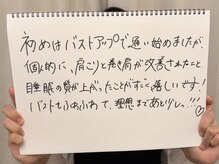 初めはバストアップで通い始めましたが、
個人的に、肩こりと巻き肩が改善されたこと、
睡眠の質が上がったことがすごく嬉しいです!
バストもふわふわで、理想まであと少し。!!